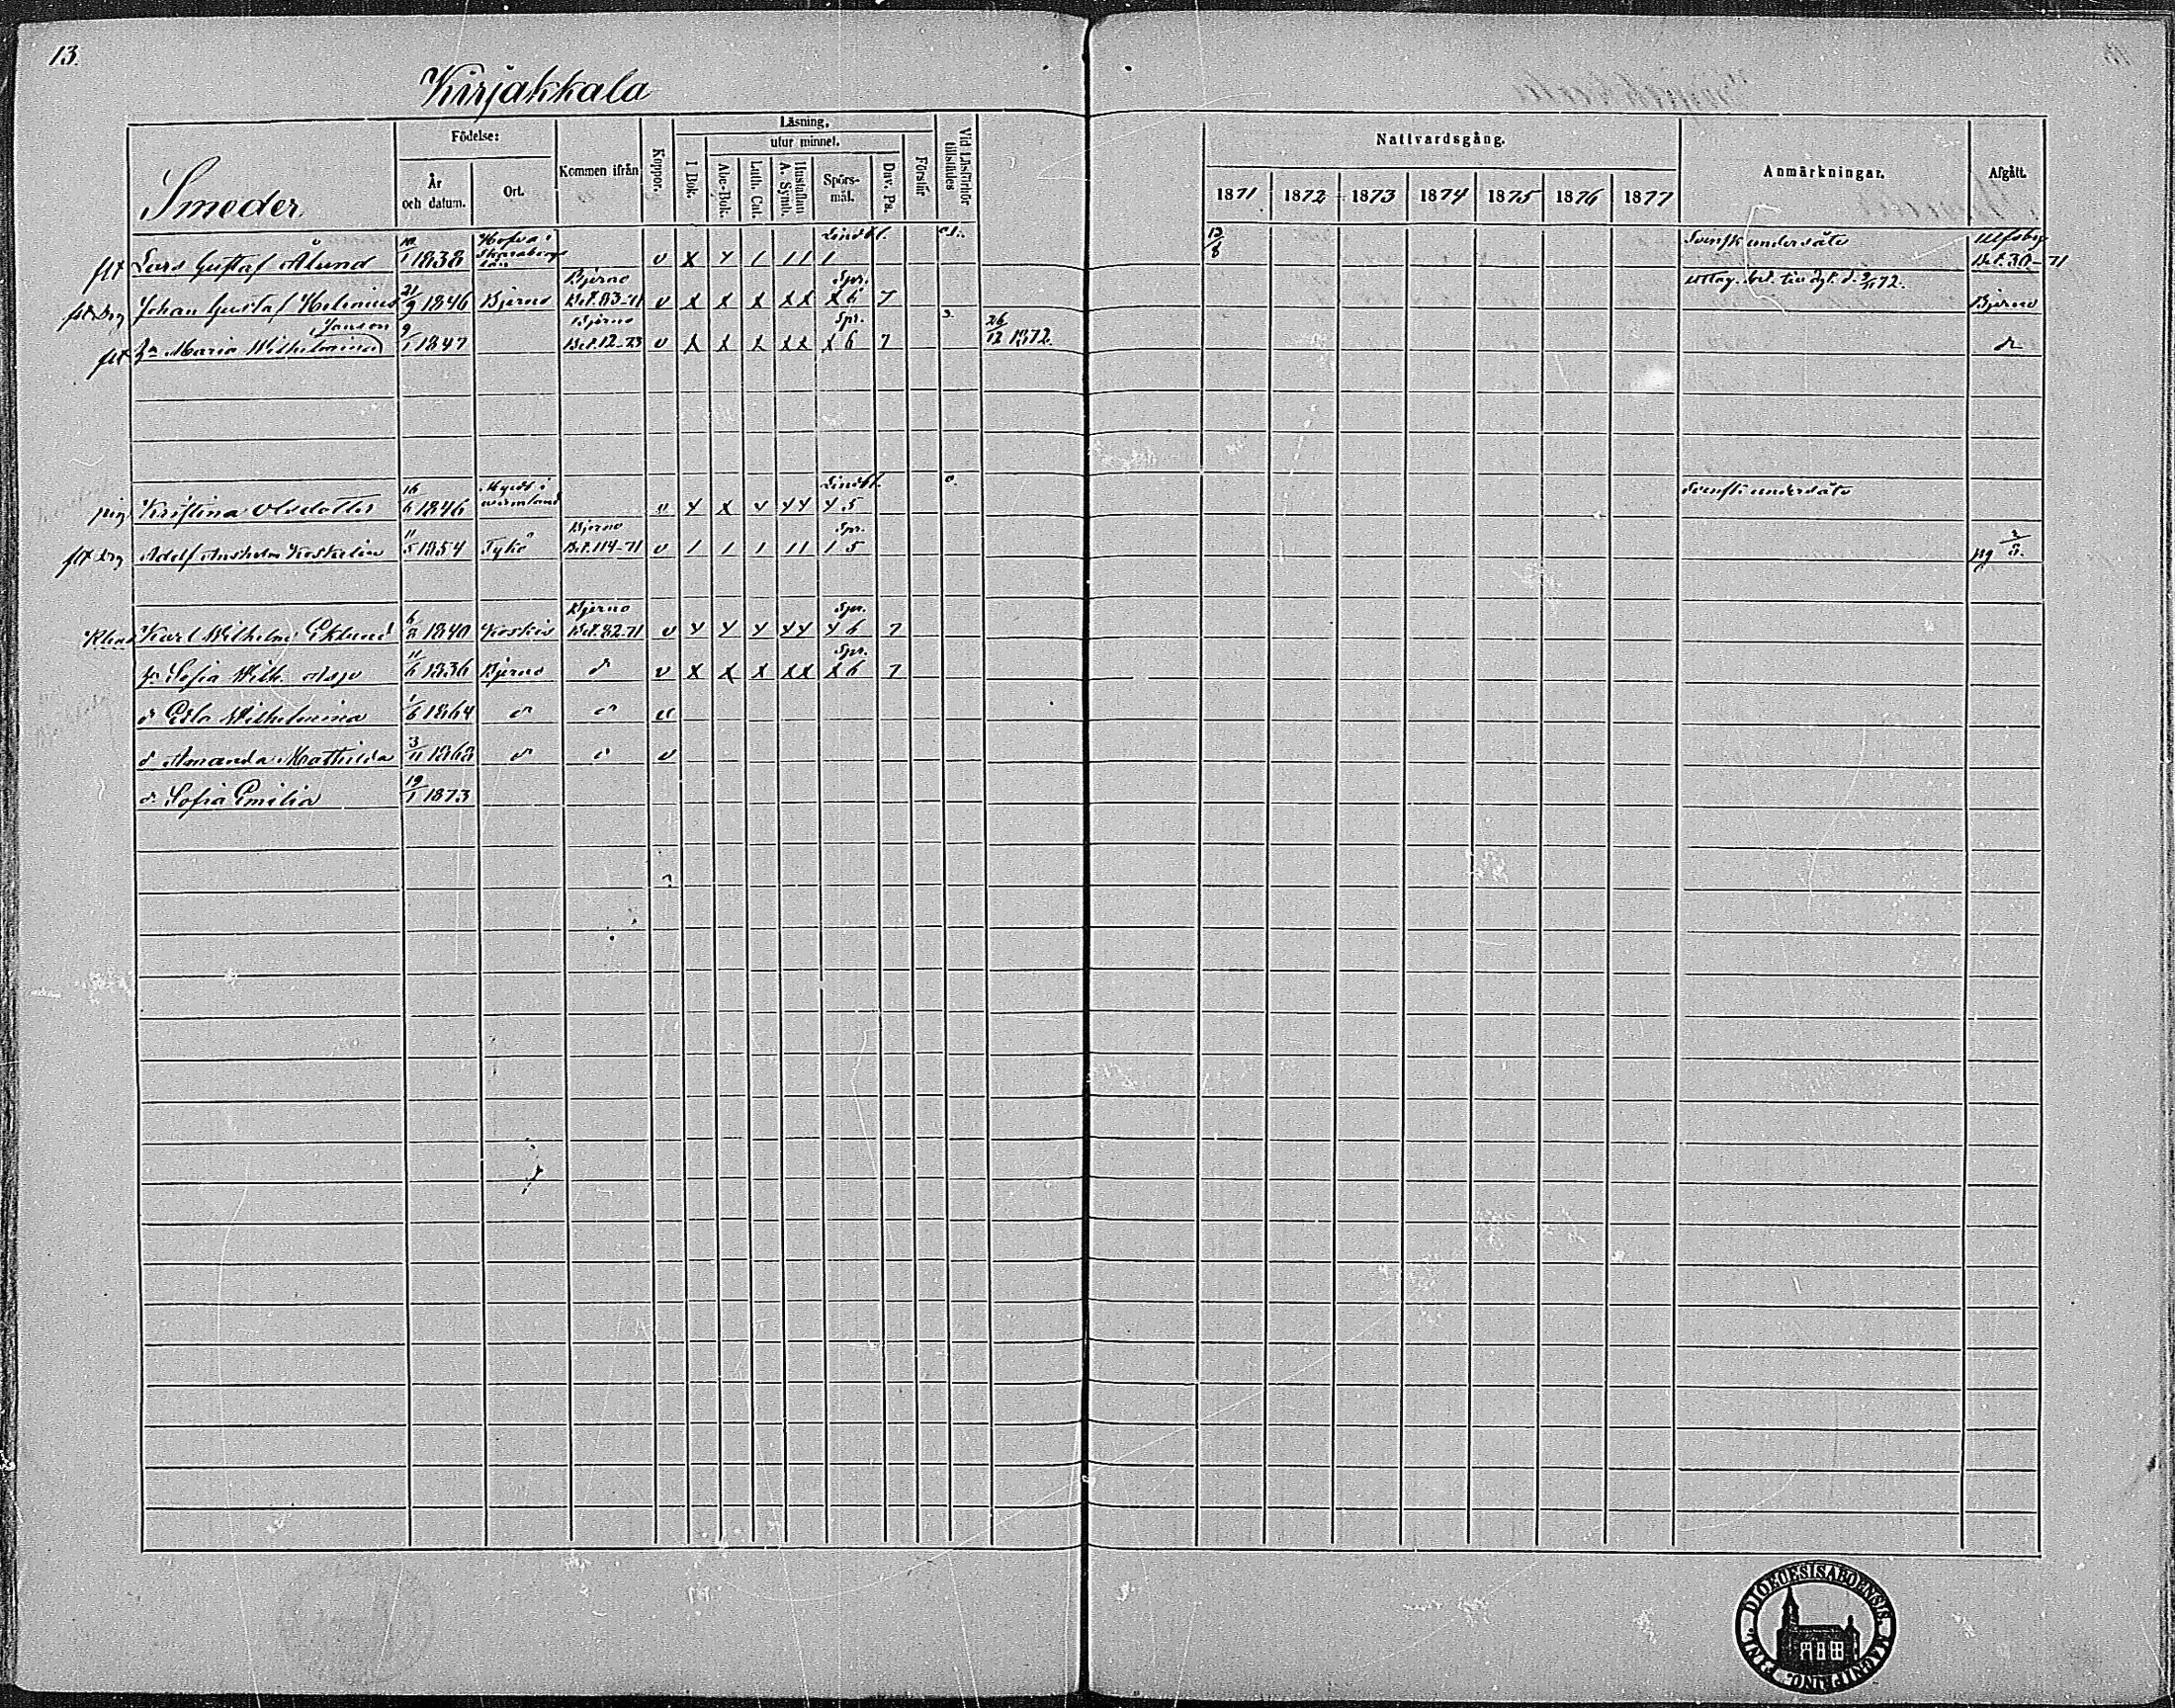 13.
Kirjakkala
Smeder
Födelse:
År och datum.
Ort.
Kommen ifrån
Koppor.
Läsning,
utur minnet.
I Bok.
Abc-Bok.
Luth. Cat.
Hustaflan A. Symb.
Spörsmål.
Dav. Ps.
Förstår
Vid Läsförhör tillstädes
Nattvardsgång.
1871 1872 1873 1874 1875 1876 1877
Anmärkningar.
Afgått.
flt Lars Gustaf Ålund 10/1 1838 Hofva i Skaraborgs län v x y 1 11 1 13/8 Svensk undersåte Ulfsby Bet. 30-71
Johan Gustaf Helenius 21/9 1846 Bjerno Bjerno Bet. 83-71 v x x x xx Spr. x 6 7 Bjerno
flt Janson
hu Maria Wilhelmina 9/1 1847 Bjerno Bet. 12-73 v x x x xx Spr. x 6 7 26/12 1872. do
pig Kristina Olsdotter 16/6 1846 wermland v y x y yy y 5 Svensk undersåte
flt Adolf Anshelm Koskelin 11/5 1854 Tykö Bjerno Bet. 114-71 v 1 1 1 11 Spr. 1 5
Karl Wilhelm Eklund 6/8 1840 Koskis Bjerno Bet. 82-71 v y y y yy Spr. y 6 7
hu Sofia Wilh. Asp 11/6 1836 Bjerno do v x x x xx Spr. x 6 7
dr Edla Wilhelmina 1/6 1864 do do v
dr Amanda Mathilda 3/11 1868 do do v
dr Sofia Emilia 19/1 1873